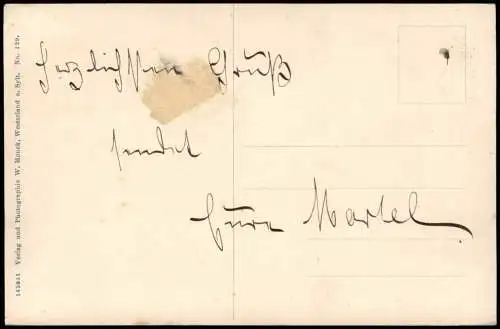 Herzlichsten Gruß
sendet
Eure Martel
145841 Verlag und Photographie W. Mauck, Westerland a. Sylt. No. 129.